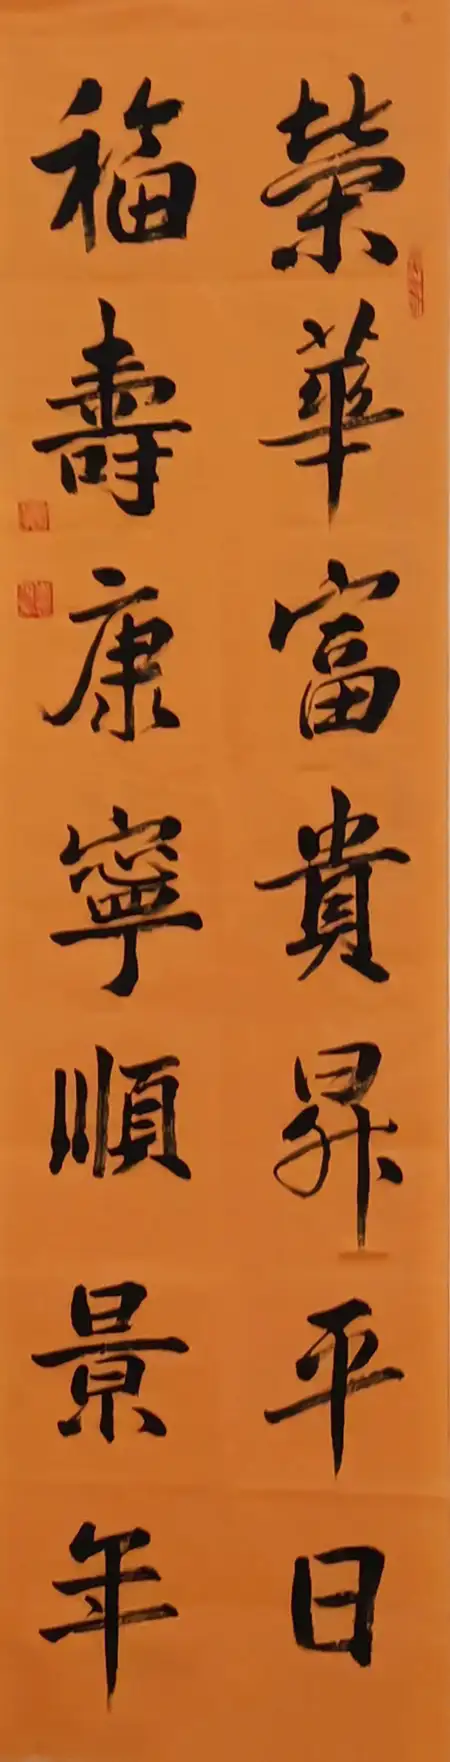 榮華富貴昇平日
福壽康寧順景年